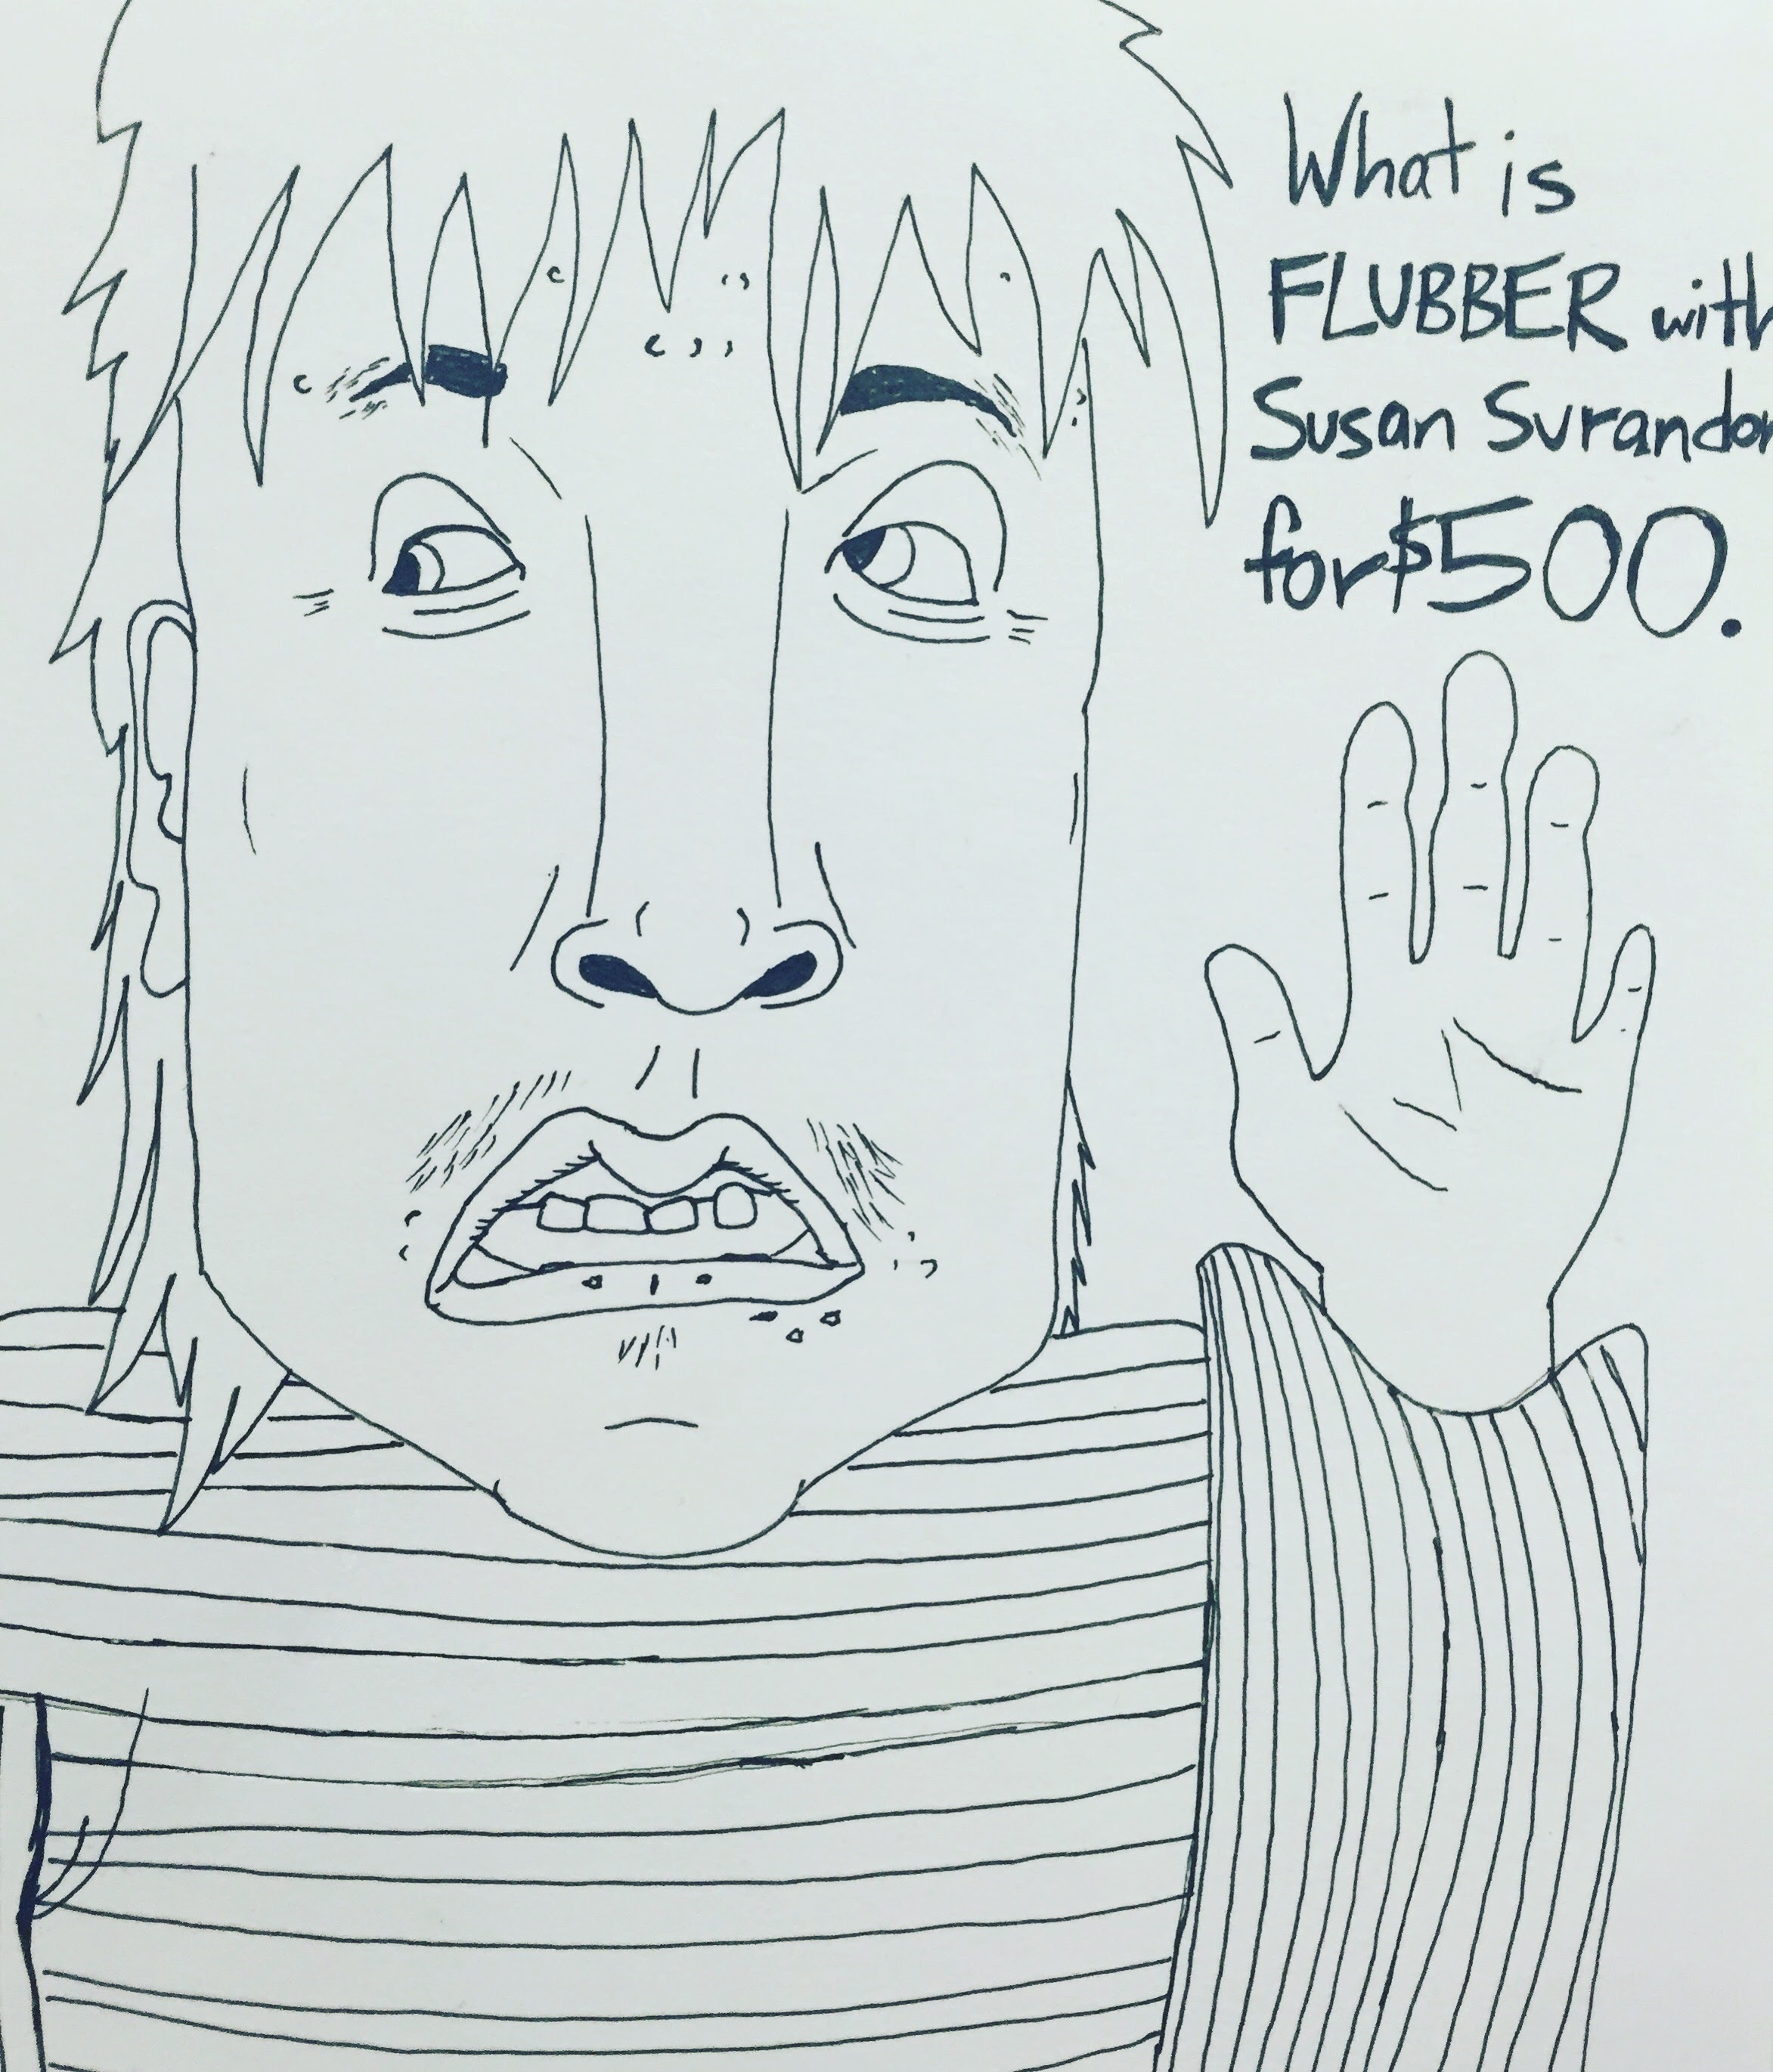 What is
FLUBBER with
Susan Surandon
for $500.